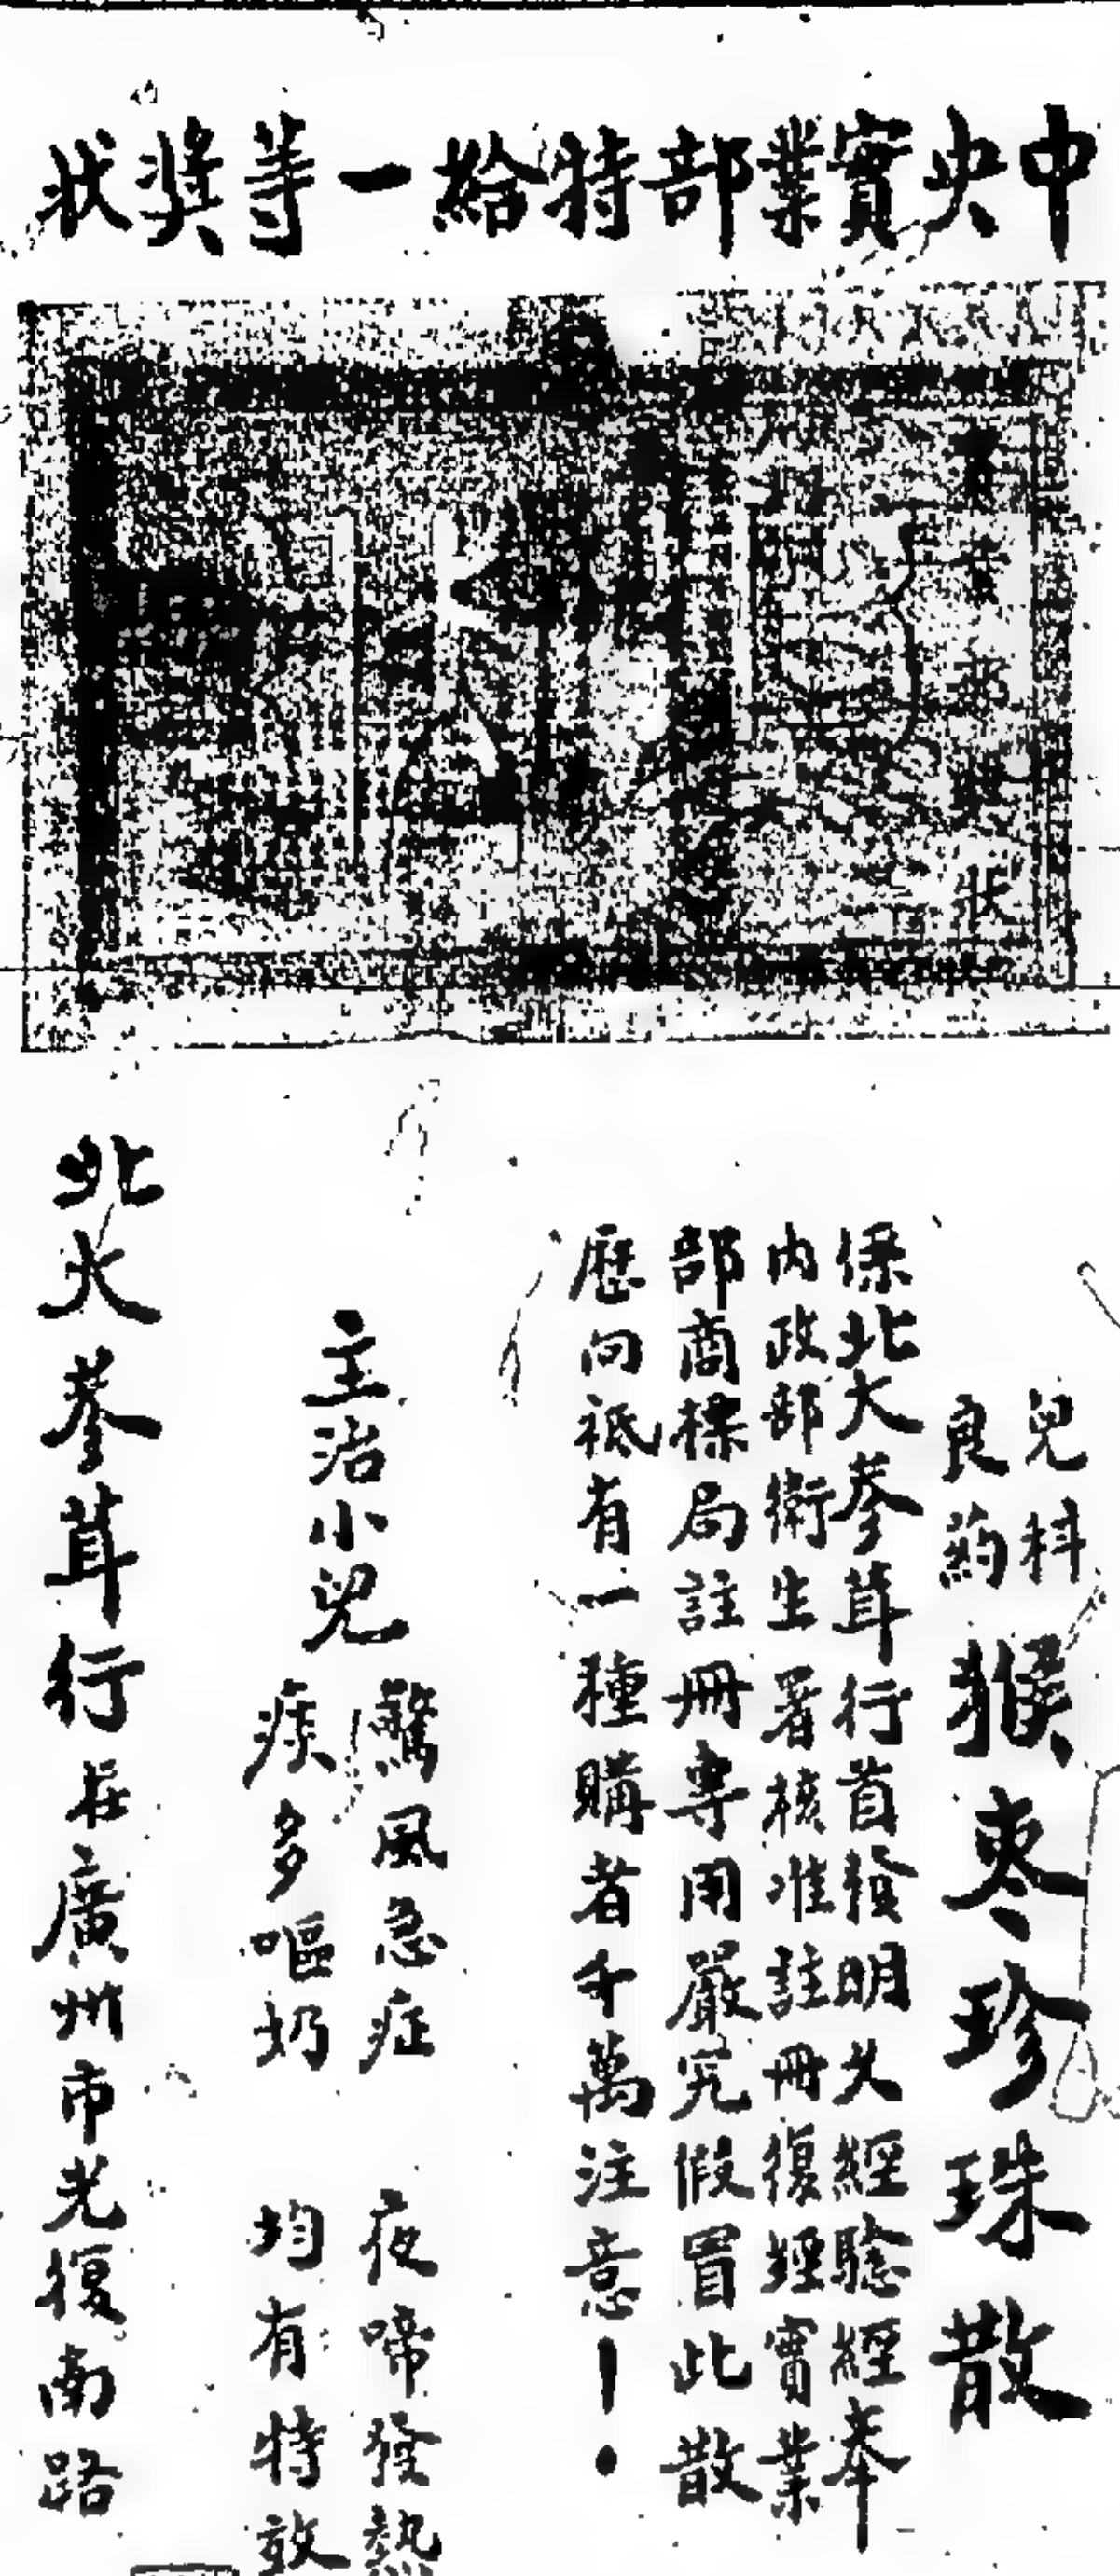 中央實業部特給一等奬狀
實業部奬狀
兒科
良葯
猴棗珍珠散
係北大蔘茸行首發明久經驗經奉
內政部衛生署核准註冊復經實業
部商標局註冊專用嚴究假冒此散
歷向祗有一種購者千萬注意！
主治小兒
驚風急症 夜啼發熱
痰多嘔奶 均有特效
北大蔘茸行在廣州市光復南路